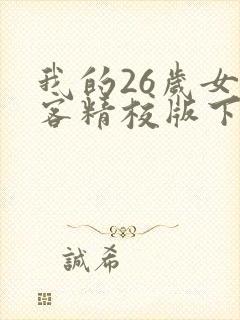 我的26歲女
客精校版下
誠希